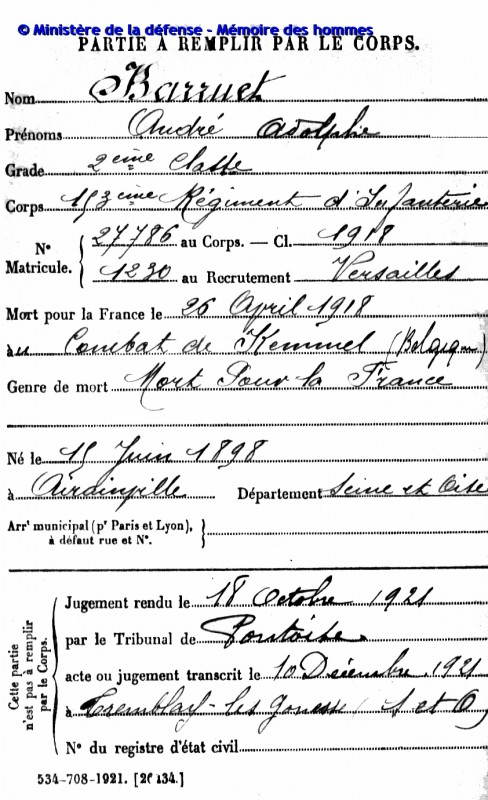 © Ministère de la défense - Mémoire des hommes
PARTIE À REMPLIR PAR LE CORPS.
Nom Barruet
Prénoms André Adolphe
Grade 2ème Classe
Corps 153ème Régiment d'Infanterie
N° Matricule. { 27786 au Corps. — Cl. 1918
1230 au Recrutement Versailles
Mort pour la France le 26 April 1918
au Combat de Kemmel (Belgique)
Genre de mort Mort Pour la France
Né le 15 Juin 1898
à Département Seine et Oise
Arrt municipal (pr Paris et Lyon), }
à défaut rue et N°.
Cette partie n'est pas à remplir par le Corps.
Jugement rendu le 18 Octobre 1921
par le Tribunal de Pontoise
acte ou jugement transcrit le 10 Décembre 1921
à Tremblay-les Gonesse (S et O)
N° du registre d'état civil
534-708-1921. [26134.]